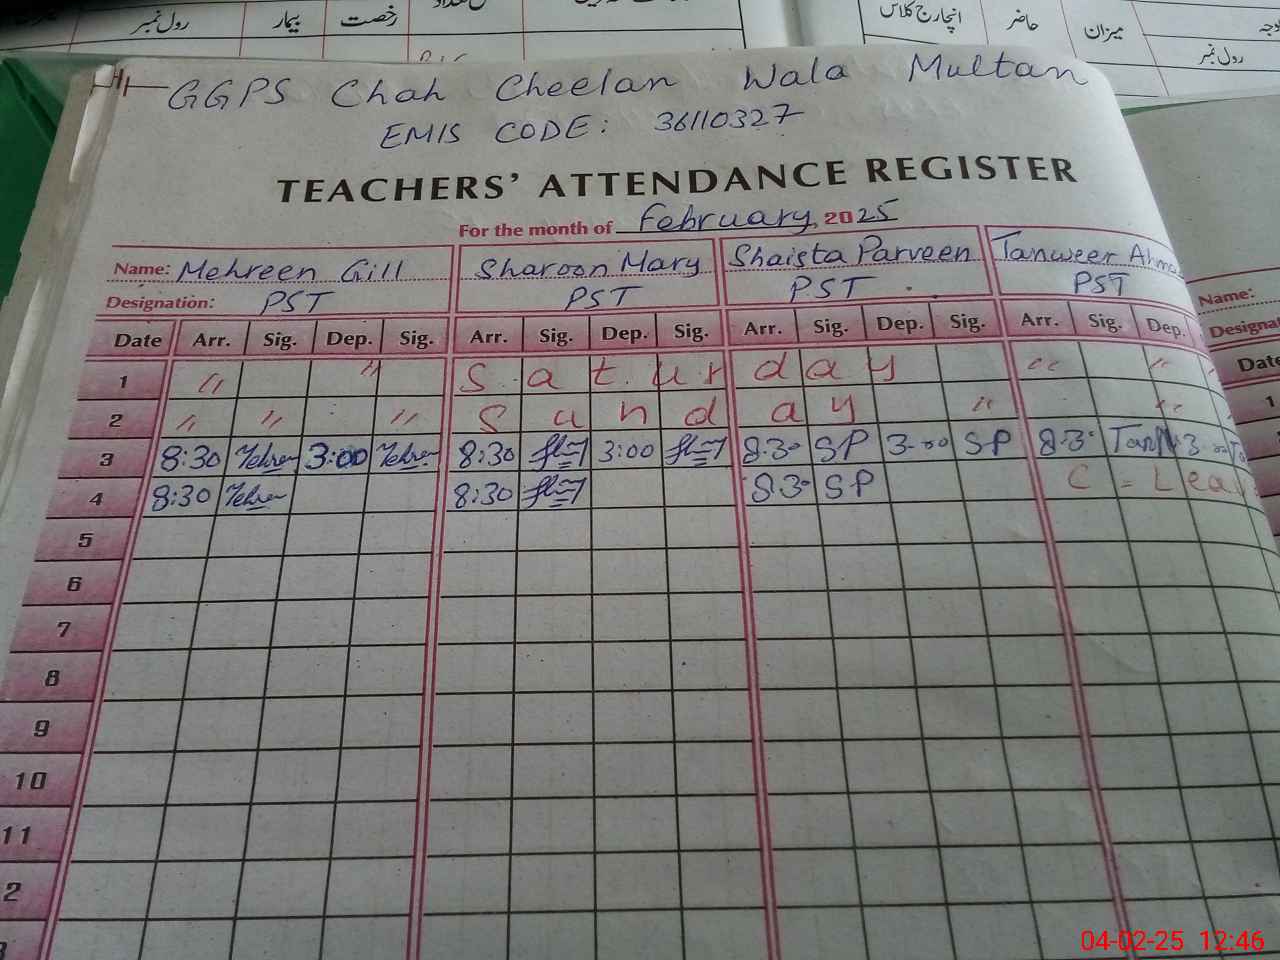 رول نمبر بیمار رخصت
انچارج کلاس حاضر میزان
رول نمبر
GGPS Chah Cheelan Wala Multan
EMIS CODE: 36110327
TEACHERS' ATTENDANCE REGISTER
For the month of February, 2025
Name: Mehreen Gill Sharoon Mary Shaista Parveen Tanweer
Designation: PST PST PST PST
Name:
Date Arr. Sig. Dep. Sig. Arr. Sig. Dep. Sig. Arr. Sig. Dep. Sig. Arr. Sig. Dep.
Date
1 " " Saturday " "
1
2 " " " Sunday " "
3 8:30 3:00 8:30 3:00 8:30 SP 3:00 SP 8:3 3
4 8:30 8:30 8:30 SP C = Lea
5
6
7
8
9
10
11
2
04-02-25 12:46